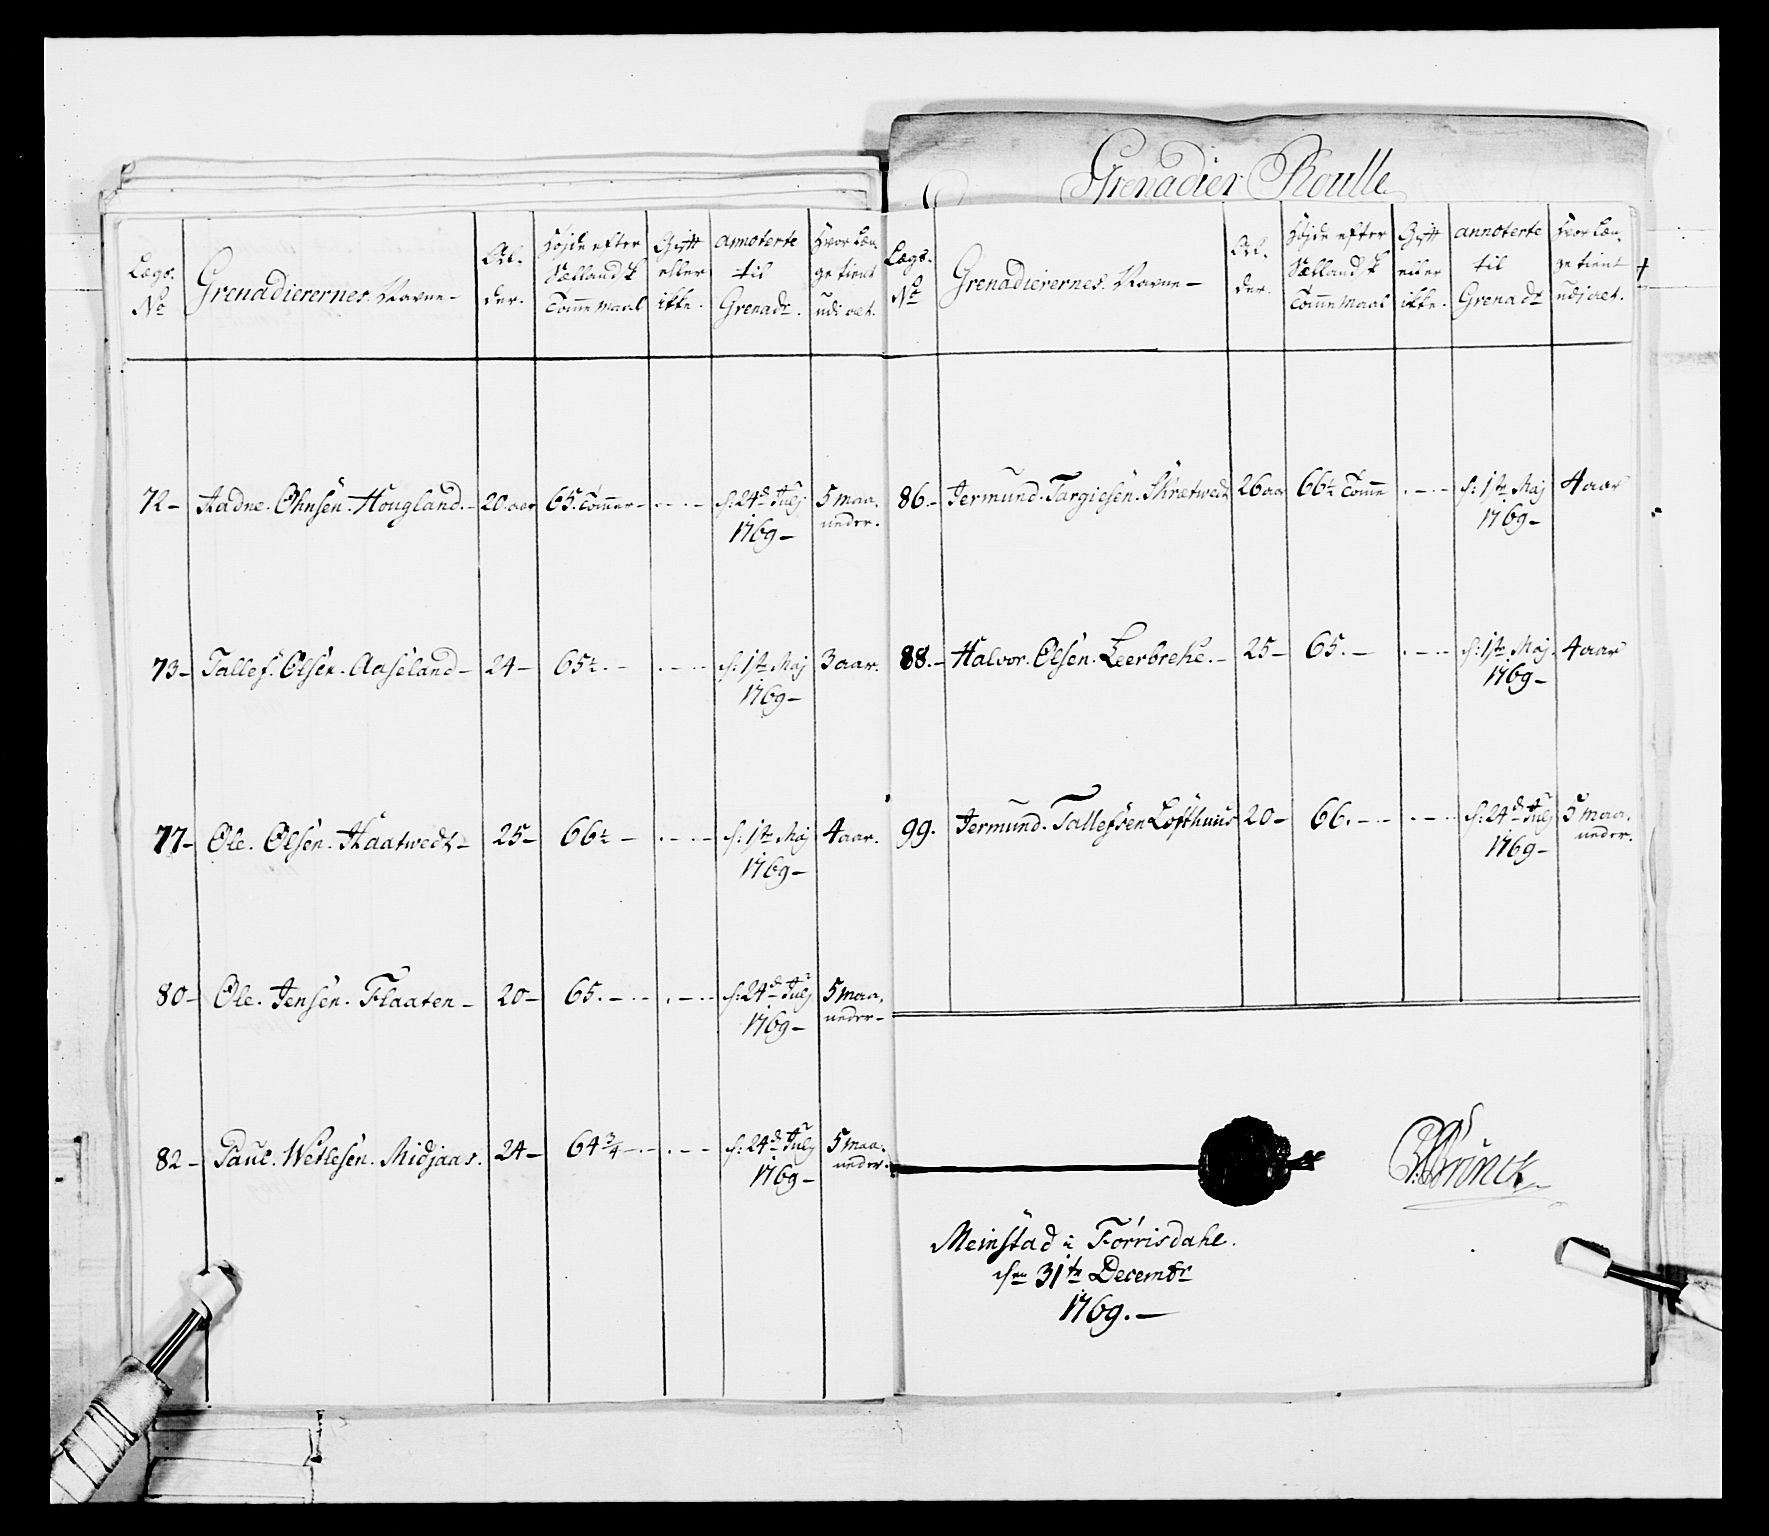 Grenadier Roulle
Lægs. No
Grenadierernes Navne
Al-
der.
Højde efter
Sællandsk
Tomme Maal
Gift
eller
ikke.
annoterte
til
Grenadr.
Hvor læn-
ge tient
udi aet.
72- Aadne. Ohnsen. Hougland.- 20. aar 65. Tommer - . - . - d: 24de Julj 1769- 5 maa-
neder.
73- Tallef. Olsen. Aaseland- 24- 65½. - . - . - d: 1te Maj 1769- 3 aar.
77- Ole. Olsen. Skaatwedt- 25- 66½ - . - . - d: 1te Maj 1769- 4 aar.
80- Ole. Jensen. Flaaten- 20- 65. - . - . - d: 24de Julj 1769- 5 maa-
neder-
82- Paul. Wetlesen. Midjaas. 24- 64¾ - . - . - d: 24de Julj 1769- 5 maa-
neder.
Lægs.
No
Grenadierernes Navne-
Al-
der.
Højde efter
Sællandsk
Tomme Maal
Gift
eller
ikke.
annoterte
til
Grenadr
Hvor læn-
ge tient
udi aet.
86.- Jermund. Targiesen. Skrætwedt 26 aar 66½ Tomme . - . - d: 1te Maj 1769- 4 aar
88.- Halvor. Olsen. Leerbrekke.- 25- 65. - . - . - d: 1te Maj. 1769- 4 aar
99. Jermund. Tallefsen Lofthuus 20- 66. - . - . - d: 24de Julj 1769- 5 maa-
neder.
Meinstad i Førrisdahl.
den 31te Decembr
1769.-